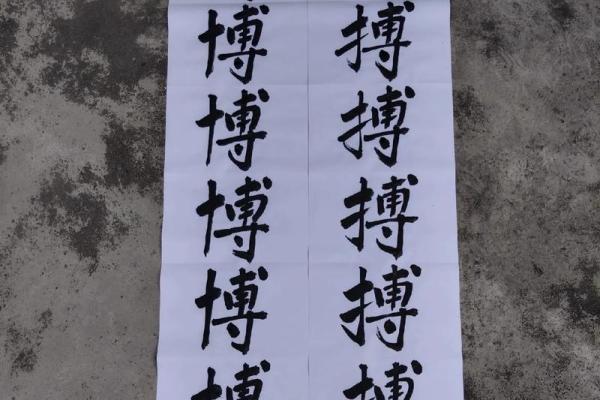 博 搏
博 搏
博 搏
博 搏
博 搏